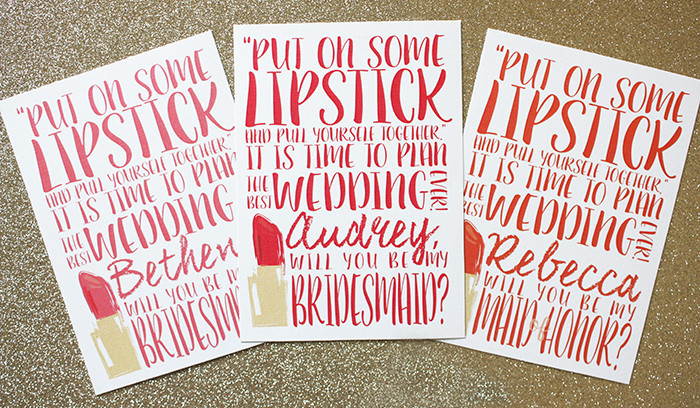 "PUT ON SOME
LIPSTICK
AND PULL YOURSELF TOGETHER."
IT IS TIME TO PLAN
THE BEST WEDDING
Bethen
WILL YOU BE MY
BRIDESMAID
"PUT ON SOME
LIPSTICK
AND PULL YOURSELF TOGETHER."
IT IS TIME TO PLAN
THE BEST WEDDING EVER!
Audrey,
WILL YOU BE MY
BRIDESMAID?
"PUT ON SOME
LIPSTICK
AND PULL YOURSELF TOGETHER."
IT IS TIME TO PLAN
THE BEST WEDDING EVER!
Rebecca
WILL YOU BE MY
MAID OF HONOR?